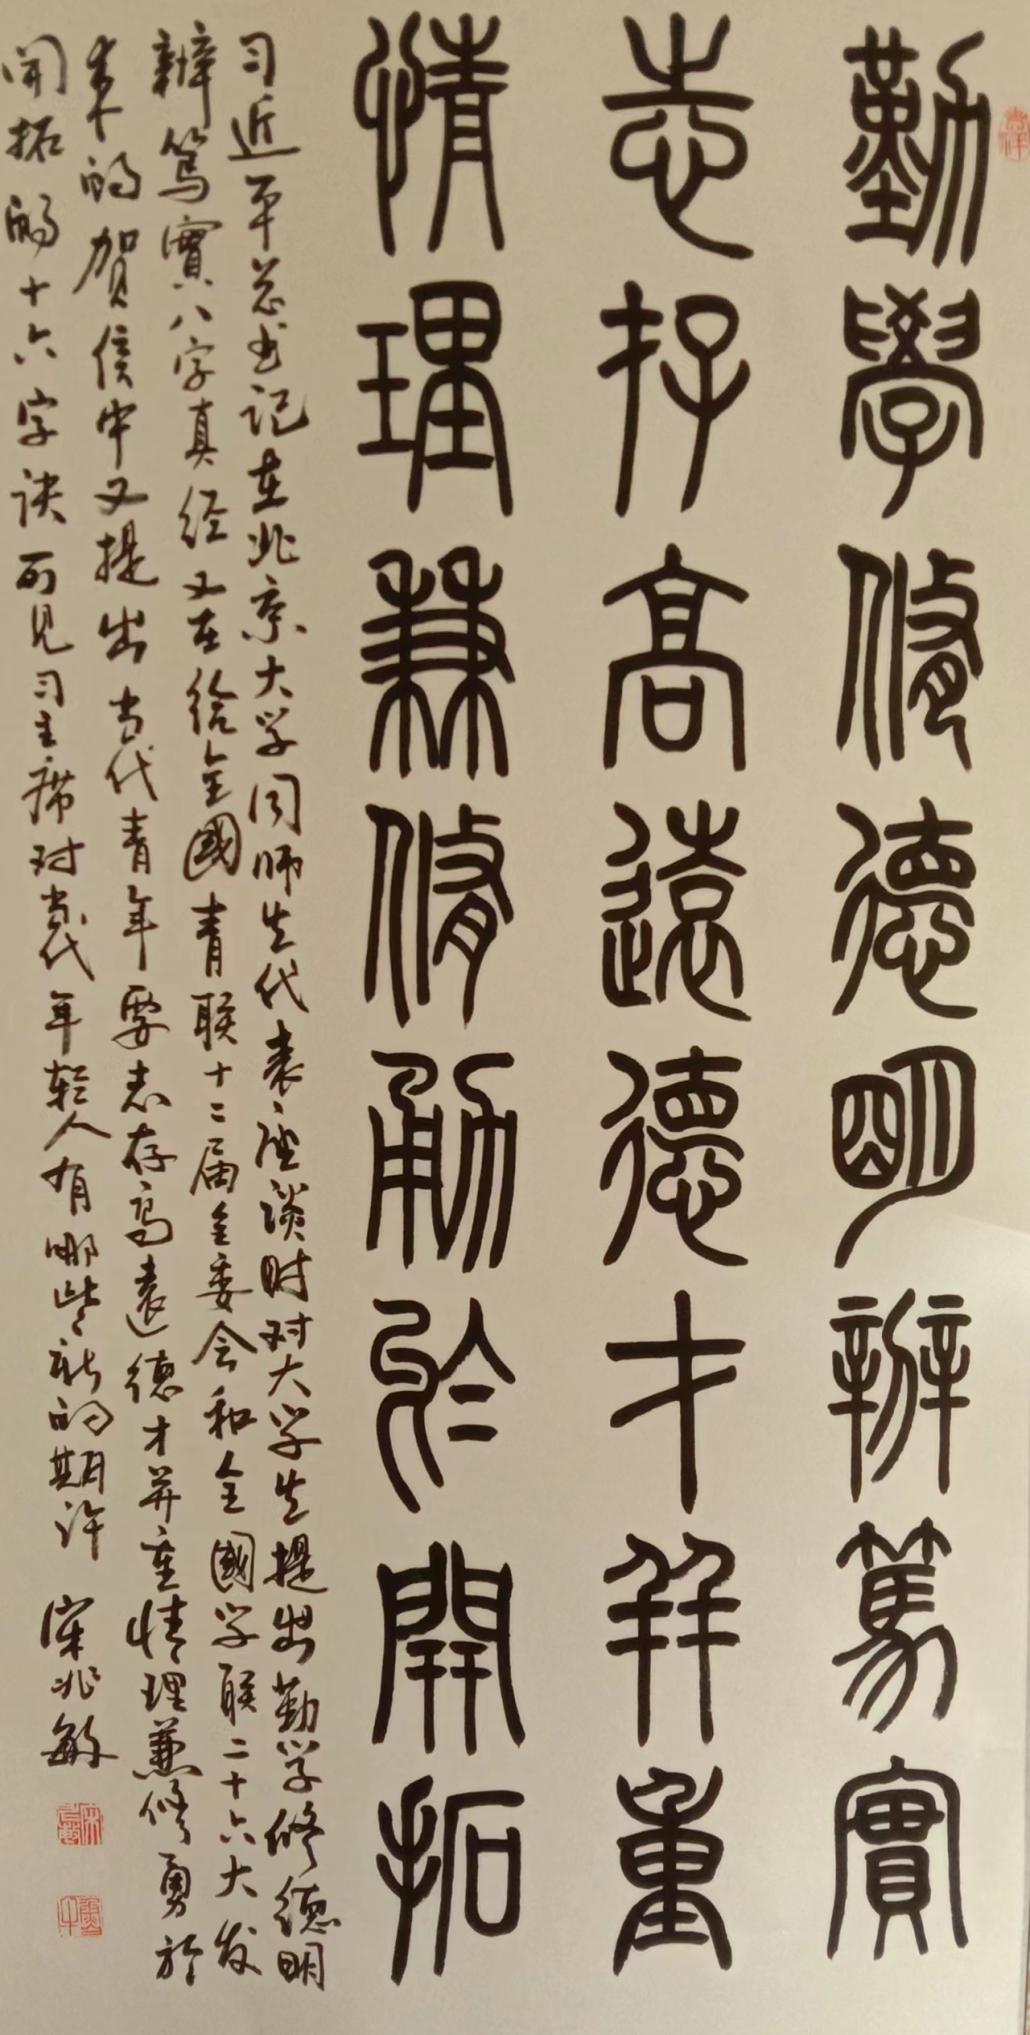 勤學修德明辦篤實
志存高遠德才并重
情理兼修勇於開拓
习近平总书记在北京大学同师生代表座谈时对大学生提出勤学修德明
辦篤實八字真经又在给全國青联十二届全委会和全國学联二十六大发
来的贺信中又提出当代青年要志存高遠德才并重情理兼修勇於
開拓的十六字诀可见习主席对当代年轻人有哪些新的期许 宋兆敏